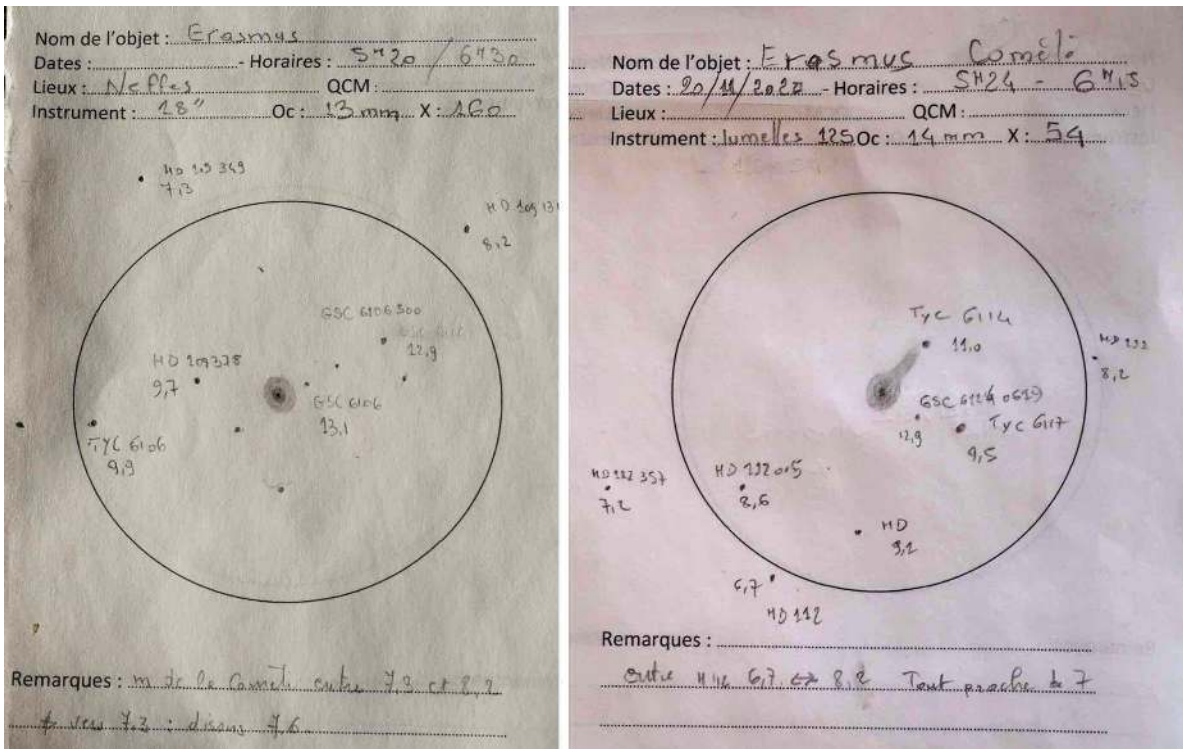 Nom de l'objet : Erasmus
Dates : - Horaires : 5H20 / 6H30
Lieux : Neffes QCM :
Instrument : 18" Oc : 13 mm X : 160
7,3
HD 109 131
8,2
GSC 6106 500
12,9
HD 109378
9,7
GSC 6106
13,1
TYC 6106
9,9
Remarques : m de la Comète entre 7,3 et 8,2
vers 7,3 : disons 7,6
Nom de l'objet : Erasmus Comète
Dates : 20/11/2020 - Horaires : 5H24 - 6H15
Lieux : QCM :
Instrument : Jumelles 125 Oc : 14 mm X : 54
TYC 6114
11,0
8,2
12,9
TYC 6117
9,5
HD 112 357
7,2
HD 112 005
8,6
HD
9,2
6,7
HD 112
Remarques :
entre 6,7 <-> 8,2 Tout proche de 7